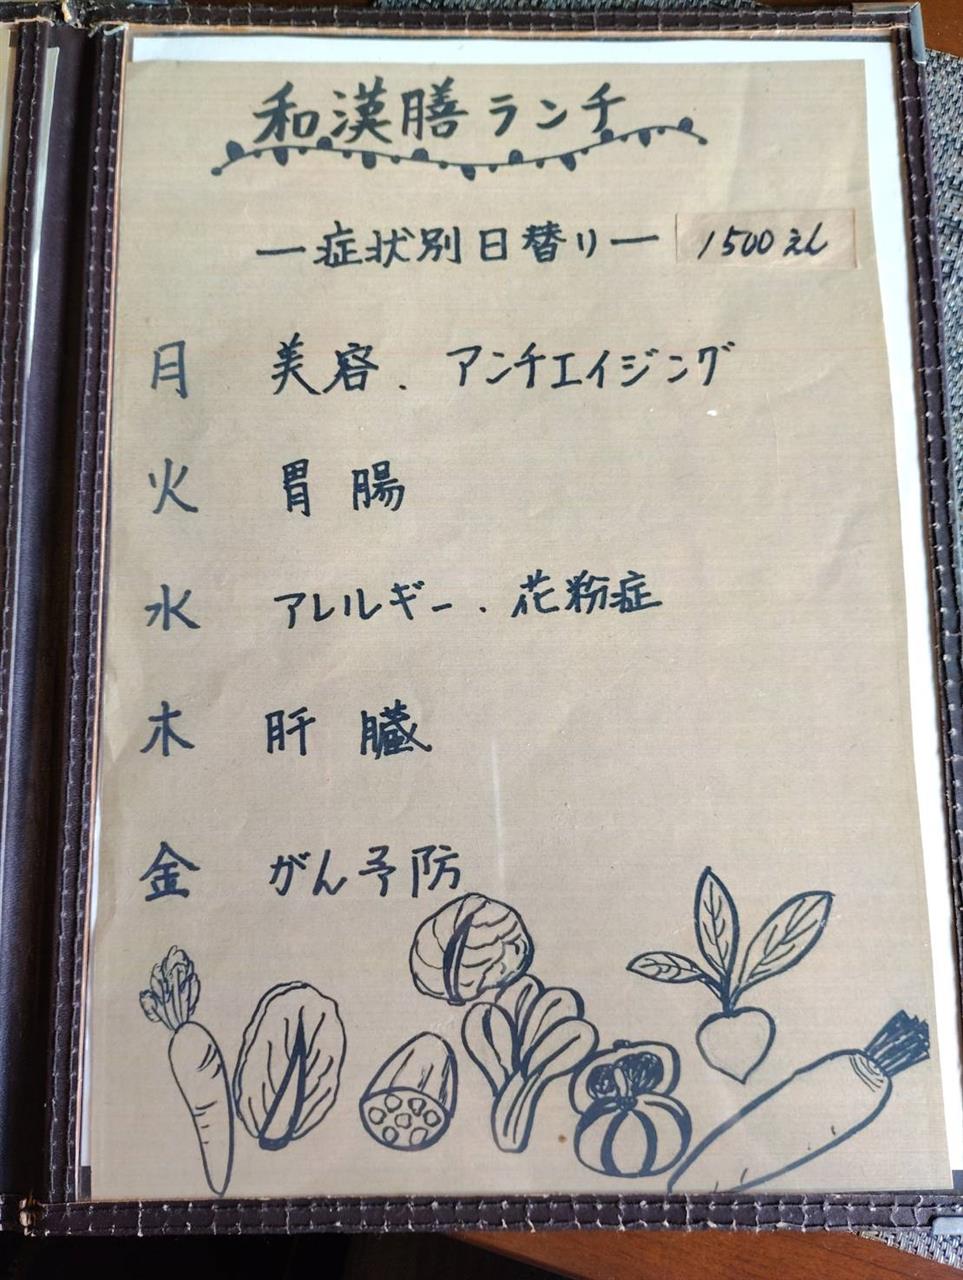 和漢膳ランチ
ー症状別日替りー 1500えん
月 美容、アンチエイジング
火 胃腸
水 アレルギー、花粉症
木 肝臓
金 がん予防